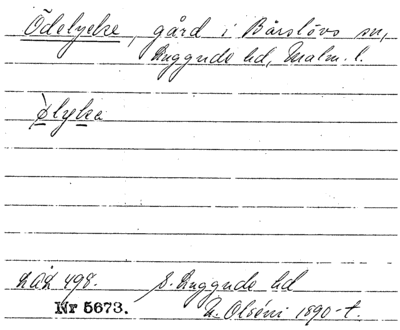 Ödelycke, gård i Bårslövs sn,
Luggude hd, Malm. l.
Ølyka
LAL 498. S. Luggude hd
Nr 5673. N. Olséni 1890-t.